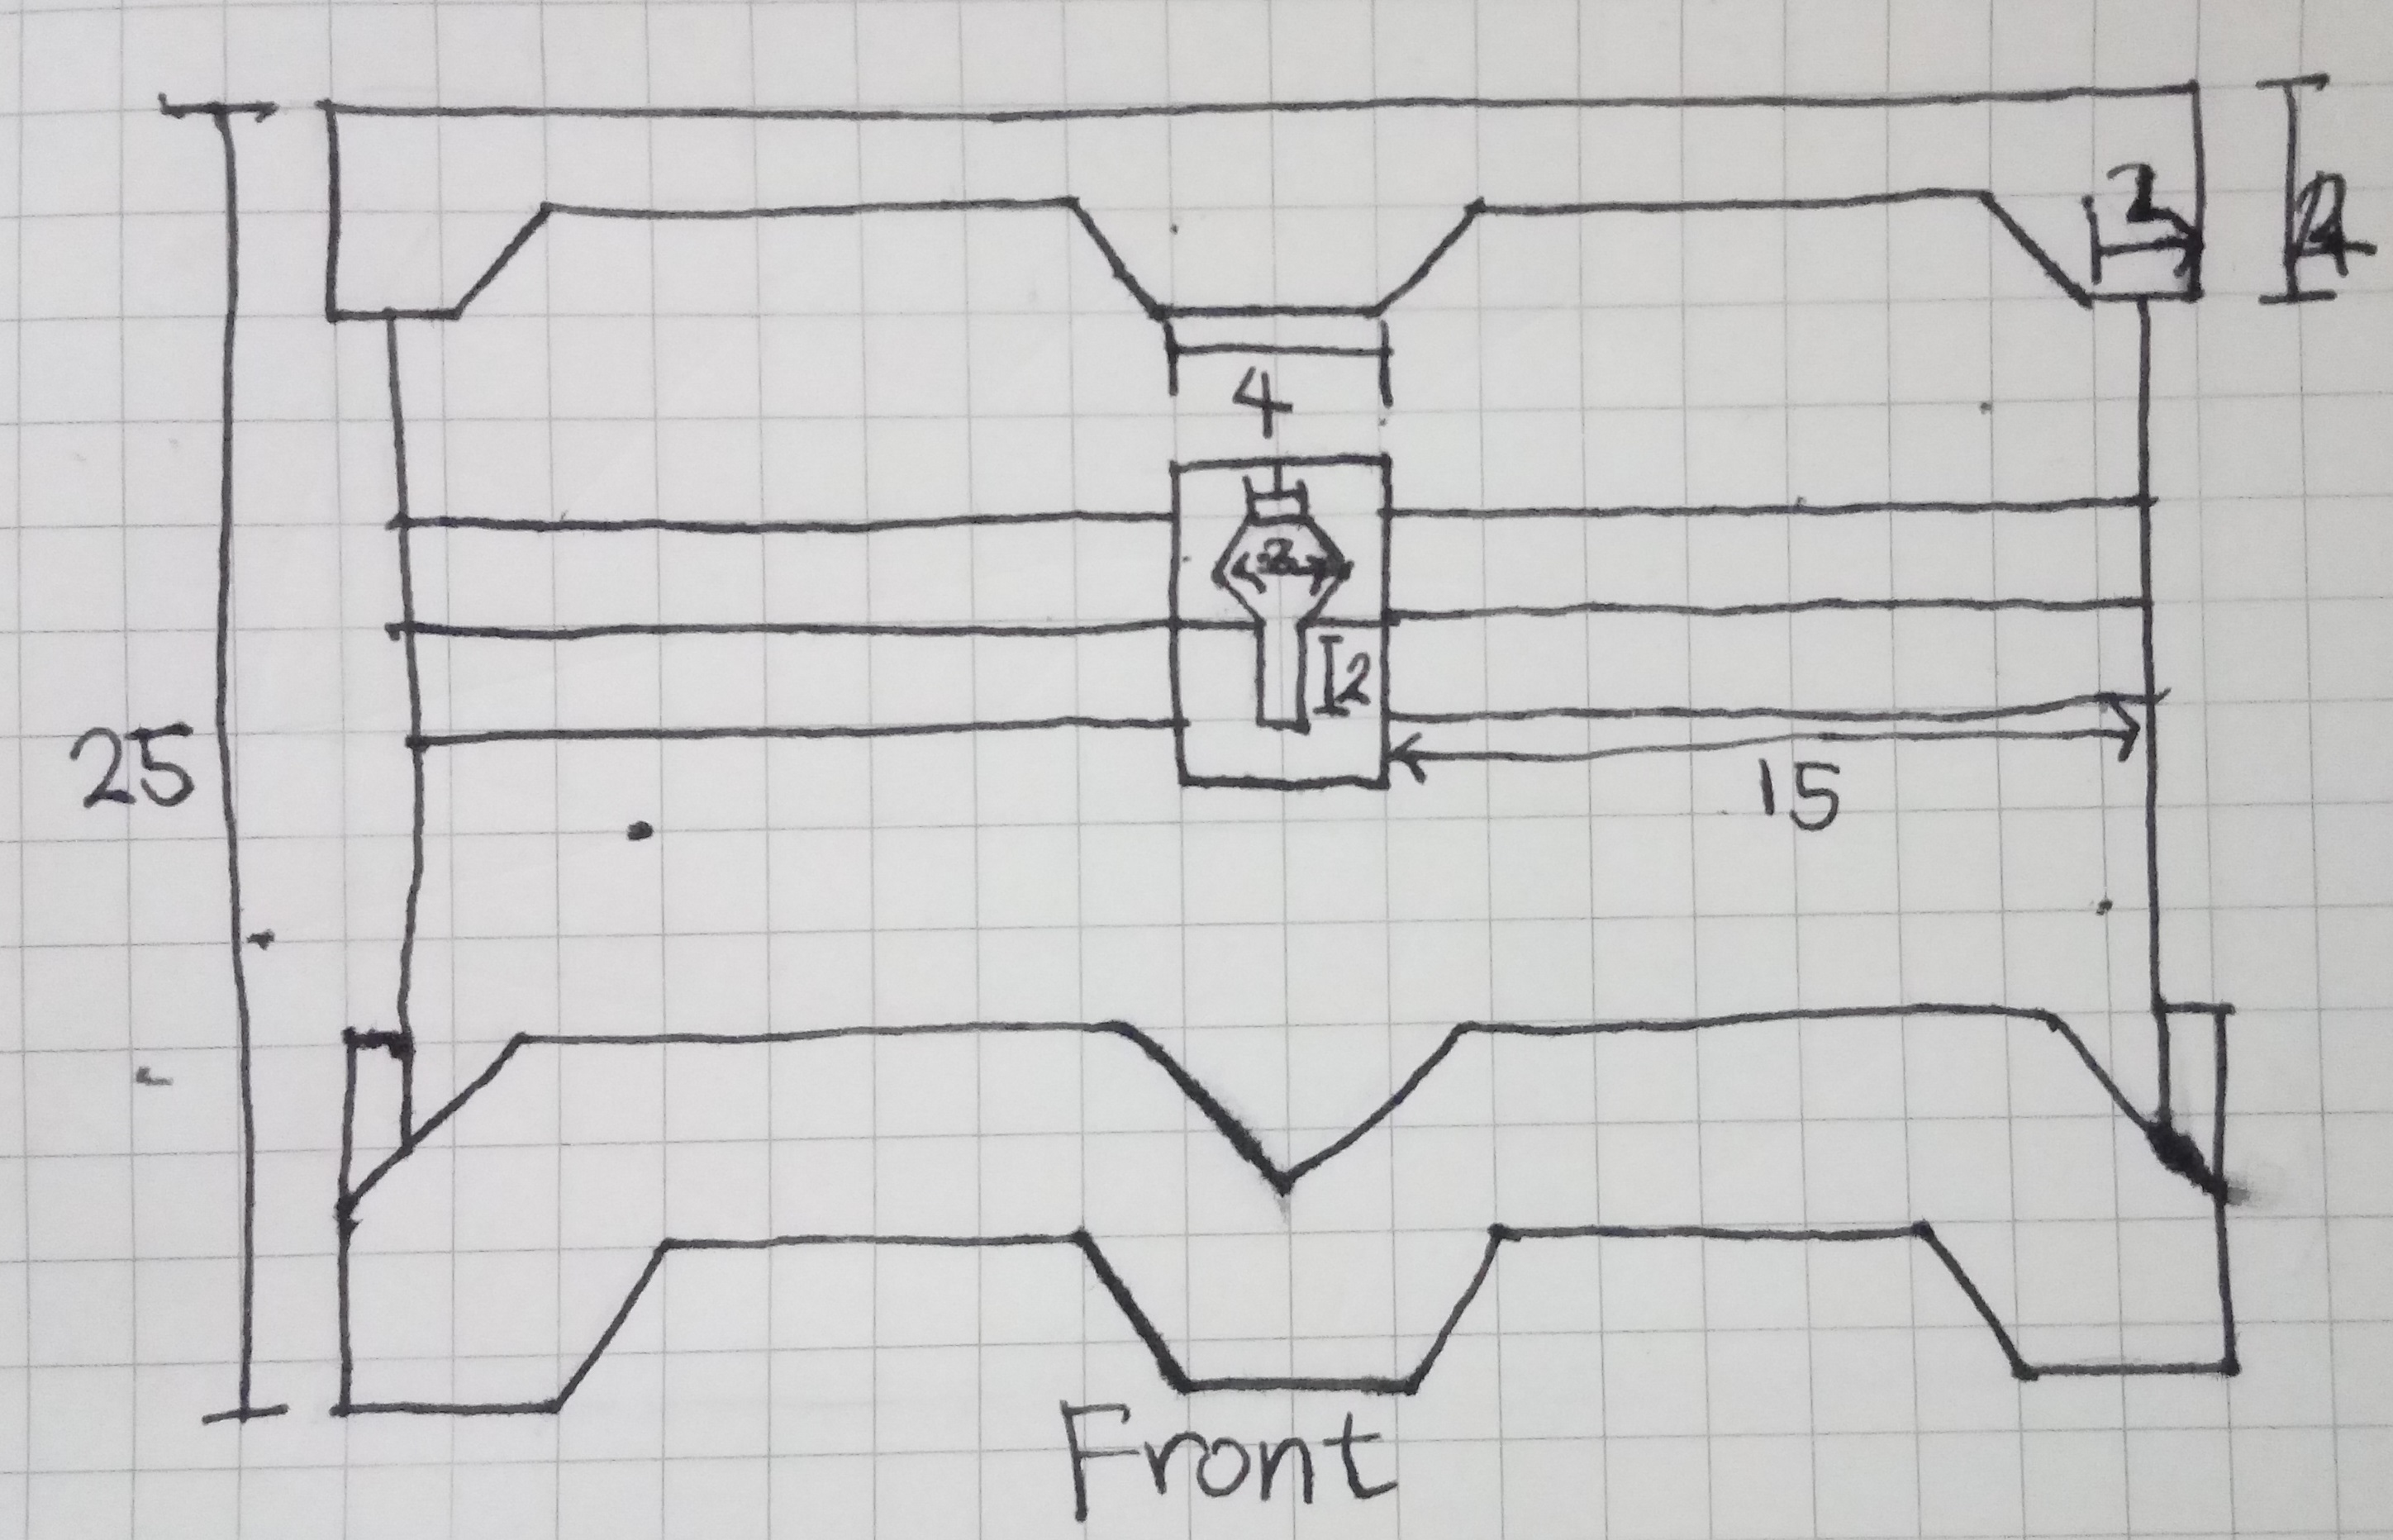 2
4
4
2
2
25
15
Front